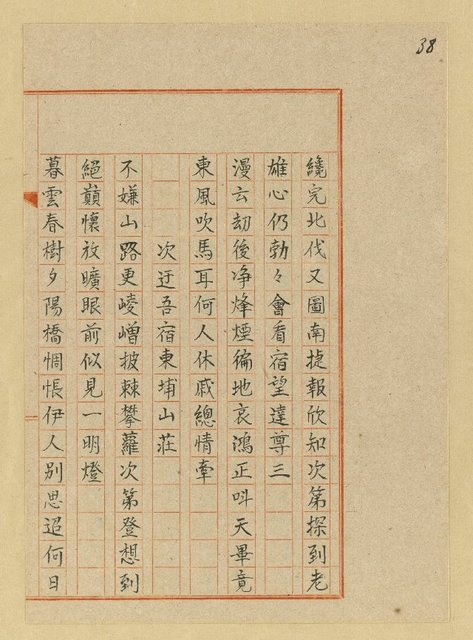 38
纔完北伐又圖南捷報欣知次第探到老
雄心仍勃々會看宿望達尊三
漫云劫後净烽煙徧地哀鴻正呌天畢竟
東風吹馬耳何人休戚總情牽
次迂吾宿東埔山莊
不嫌山路更崚嶒披棘攀蘿次第登想到
絕巔懷放曠眼前似見一明燈
暮雲春樹夕陽橋惆悵伊人別思迢何日